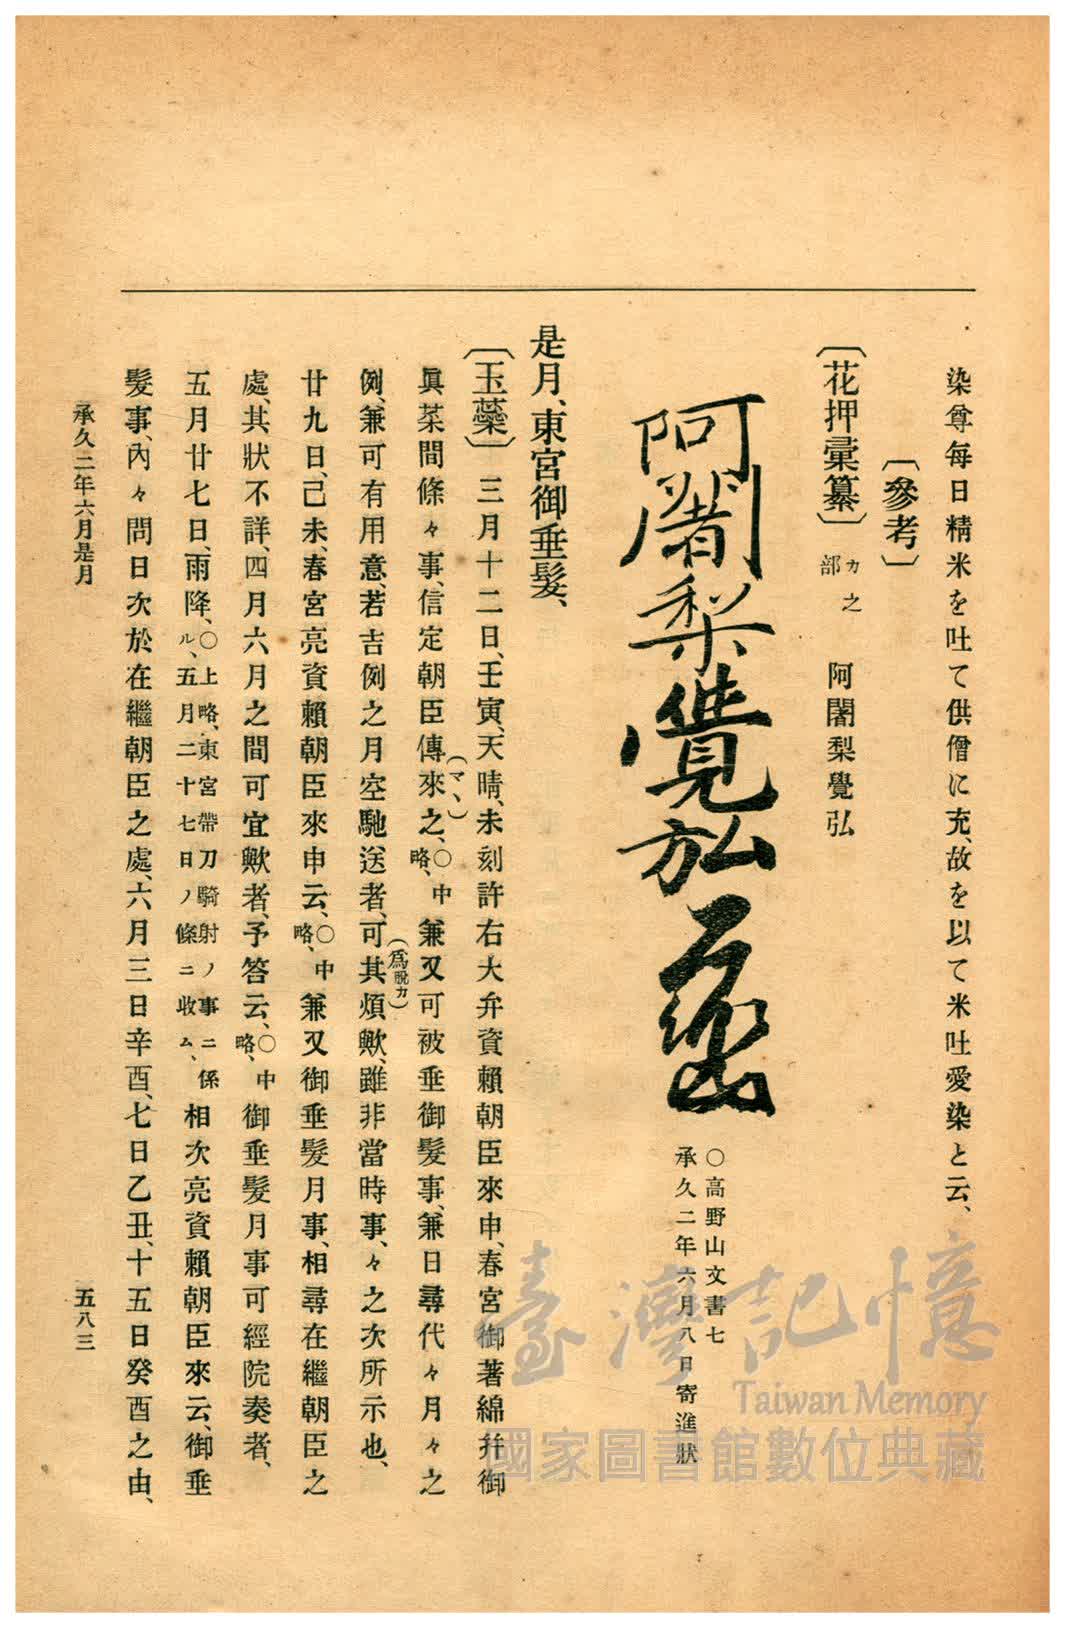 染尊每日精米を吐て供僧に充、故を以て米吐愛染と云、
〔參考〕
〔花押彙纂〕 カ之部 阿闍梨覺弘
阿闍梨覺弘
○高野山文書七
承久二年六月八日寄進狀
是月、東宮御垂髮、
〔玉蘂〕 三月十二日、壬寅、天晴、未刻許右大弁資賴朝臣來申、春宮御著綿幷御
眞菜間條々事、信定朝臣傳來(マヽ)之、○中略、兼又可被垂御髮事、兼日尋代々月々之
例、兼可有用意、若吉例之月空馳送者、可(爲脫カ)其煩歟、雖非當時事、々之次所示也、
廿九日、己未、春宮亮資賴朝臣來申云、○中略、兼又御垂髮月事、相尋在繼朝臣之
處、其狀不詳、四月六月之間可宜歟者、予答云、○中略、御垂髮月事可經院奏者、
五月廿七日、雨降、○上略、東宮帶刀騎射ノ事ニ係ル、五月二十七日ノ條ニ收ム、相次亮資賴朝臣來云、御垂
髮事、內々問日次於在繼朝臣之處、六月三日辛酉、七日乙丑、十五日癸酉之由、
承久二年六月是月
五八三
臺灣記憶
Taiwan Memory
國家圖書館數位典藏